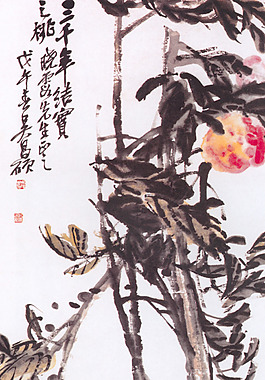 三千年結實
之桃晓霞先生正之
戊午春吴昌碩